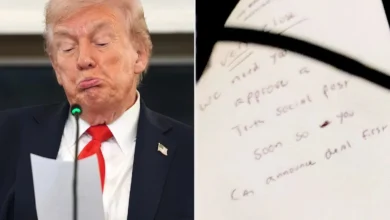 We need you to
approve a
Truth Social post
soon so you
can announce deal first